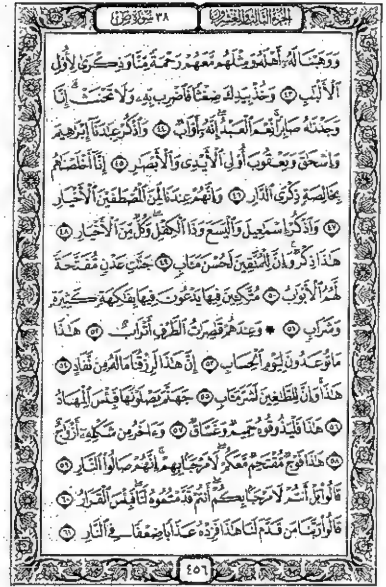 الجزء الثالث والعشرون
٣٨ سورة ص
وَوَهَبْنَا لَهُۥٓ أَهْلَهُۥ وَمِثْلَهُم مَّعَهُمْ رَحْمَةً مِّنَّا وَذِكْرَىٰ لِأُو۟لِى
ٱلْأَلْبَٰبِ ٤٣ وَخُذْ بِيَدِكَ ضِغْثًا فَٱضْرِب بِّهِۦ وَلَا تَحْنَثْ ۗ إِنَّا
وَجَدْنَٰهُ صَابِرًا ۚ نِّعْمَ ٱلْعَبْدُ ۖ إِنَّهُۥٓ أَوَّابٌ ٤٤ وَٱذْكُرْ عِبَٰدَنَآ إِبْرَٰهِيمَ
وَإِسْحَٰقَ وَيَعْقُوبَ أُو۟لِى ٱلْأَيْدِى وَٱلْأَبْصَٰرِ ٤٥ إِنَّآ أَخْلَصْنَٰهُم
بِخَالِصَةٍ ذِكْرَى ٱلدَّارِ ٤٦ وَإِنَّهُمْ عِندَنَا لَمِنَ ٱلْمُصْطَفَيْنَ ٱلْأَخْيَارِ
٤٧ وَٱذْكُرْ إِسْمَٰعِيلَ وَٱلْيَسَعَ وَذَا ٱلْكِفْلِ ۖ وَكُلٌّ مِّنَ ٱلْأَخْيَارِ ٤٨
هَٰذَا ذِكْرٌ ۚ وَإِنَّ لِلْمُتَّقِينَ لَحُسْنَ مَـَٔابٍ ٤٩ جَنَّٰتِ عَدْنٍ مُّفَتَّحَةً
لَّهُمُ ٱلْأَبْوَٰبُ ٥٠ مُتَّكِـِٔينَ فِيهَا يَدْعُونَ فِيهَا بِفَٰكِهَةٍ كَثِيرَةٍ
وَشَرَابٍ ٥١ وَعِندَهُمْ قَٰصِرَٰتُ ٱلطَّرْفِ أَتْرَابٌ ٥٢ هَٰذَا
مَا تُوعَدُونَ لِيَوْمِ ٱلْحِسَابِ ٥٣ إِنَّ هَٰذَا لَرِزْقُنَا مَا لَهُۥ مِن نَّفَادٍ ٥٤
هَٰذَا ۚ وَإِنَّ لِلطَّٰغِينَ لَشَرَّ مَـَٔابٍ ٥٥ جَهَنَّمَ يَصْلَوْنَهَا فَبِئْسَ ٱلْمِهَادُ
٥٦ هَٰذَا فَلْيَذُوقُوهُ حَمِيمٌ وَغَسَّاقٌ ٥٧ وَءَاخَرُ مِن شَكْلِهِۦٓ أَزْوَٰجٌ
٥٨ هَٰذَا فَوْجٌ مُّقْتَحِمٌ مَّعَكُمْ ۖ لَا مَرْحَبًۢا بِهِمْ ۚ إِنَّهُمْ صَالُوا۟ ٱلنَّارِ ٥٩
قَالُوا۟ بَلْ أَنتُمْ لَا مَرْحَبًۢا بِكُمْ ۖ أَنتُمْ قَدَّمْتُمُوهُ لَنَا ۖ فَبِئْسَ ٱلْقَرَارُ ٦٠
قَالُوا۟ رَبَّنَا مَن قَدَّمَ لَنَا هَٰذَا فَزِدْهُ عَذَابًا ضِعْفًا فِى ٱلنَّارِ ٦١
٤٥٦